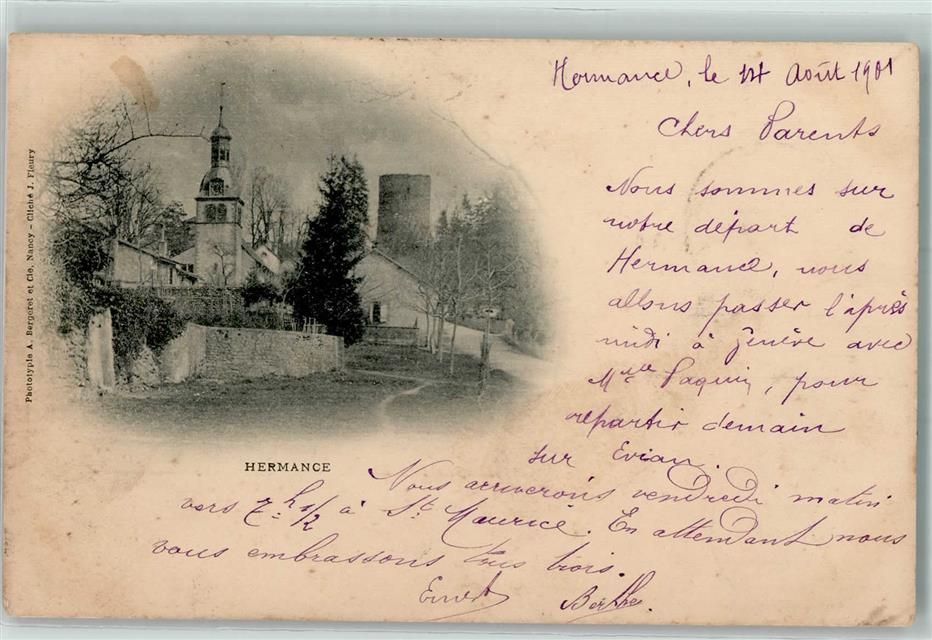 Hermance, le 14 Août 1901
Chers Parents
Nous sommes sur
notre départ de
Hermance, nous
allons passer l'après
midi à Genève avec
Melle Paquin, pour
repartir demain
sur Evian.
Nous arriverons vendredi matin
vers 7h 1/2 à St Maurice. En attendant nous
vous embrassons tous trois.
Ernest Berthe.
HERMANCE
Phototypie A. Bergeret et Cie, Nancy - Cliché J. Fleury